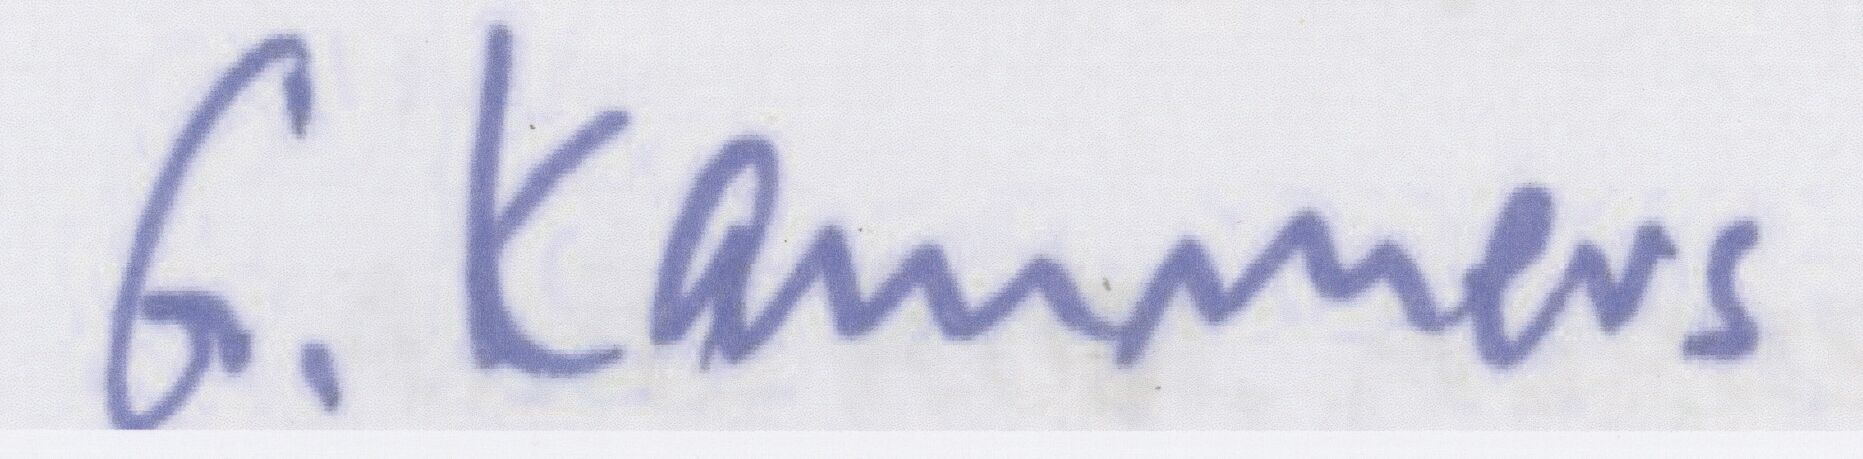 G. Kammers